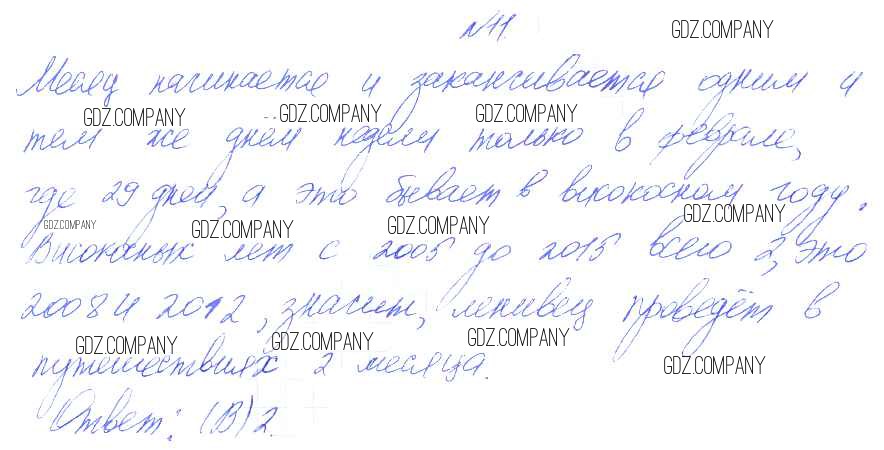 №11. GDZ.COMPANY
Месяц начинается и заканчивается одним и
GDZ.COMPANY GDZ.COMPANY GDZ.COMPANY
тем же днём недели только в феврале,
где 29 дней, а это бывает в високосном году.
GDZ.COMPANY GDZ.COMPANY GDZ.COMPANY GDZ.COMPANY
Високосных лет с 2005 до 2015 всего 2, это
2008 и 2012, значит, ленивец проведёт в
GDZ.COMPANY GDZ.COMPANY GDZ.COMPANY GDZ.COMPANY
путешествиях 2 месяца.
Ответ: (В) 2.